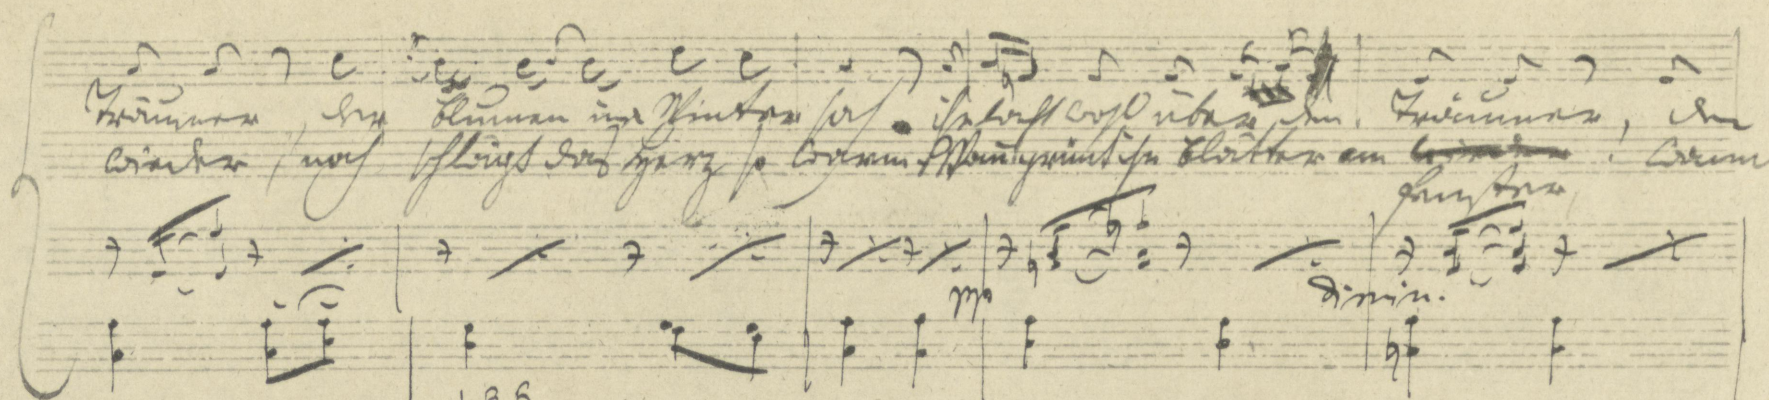 Träumer, der Blumen im Winter sah. ihr lacht wohl über den Träumer, den
wieder, noch schlägt das Herz so warm. Wann grünt ihr Blätter am wieder! wann
Fenster,
pp
dimin.
136